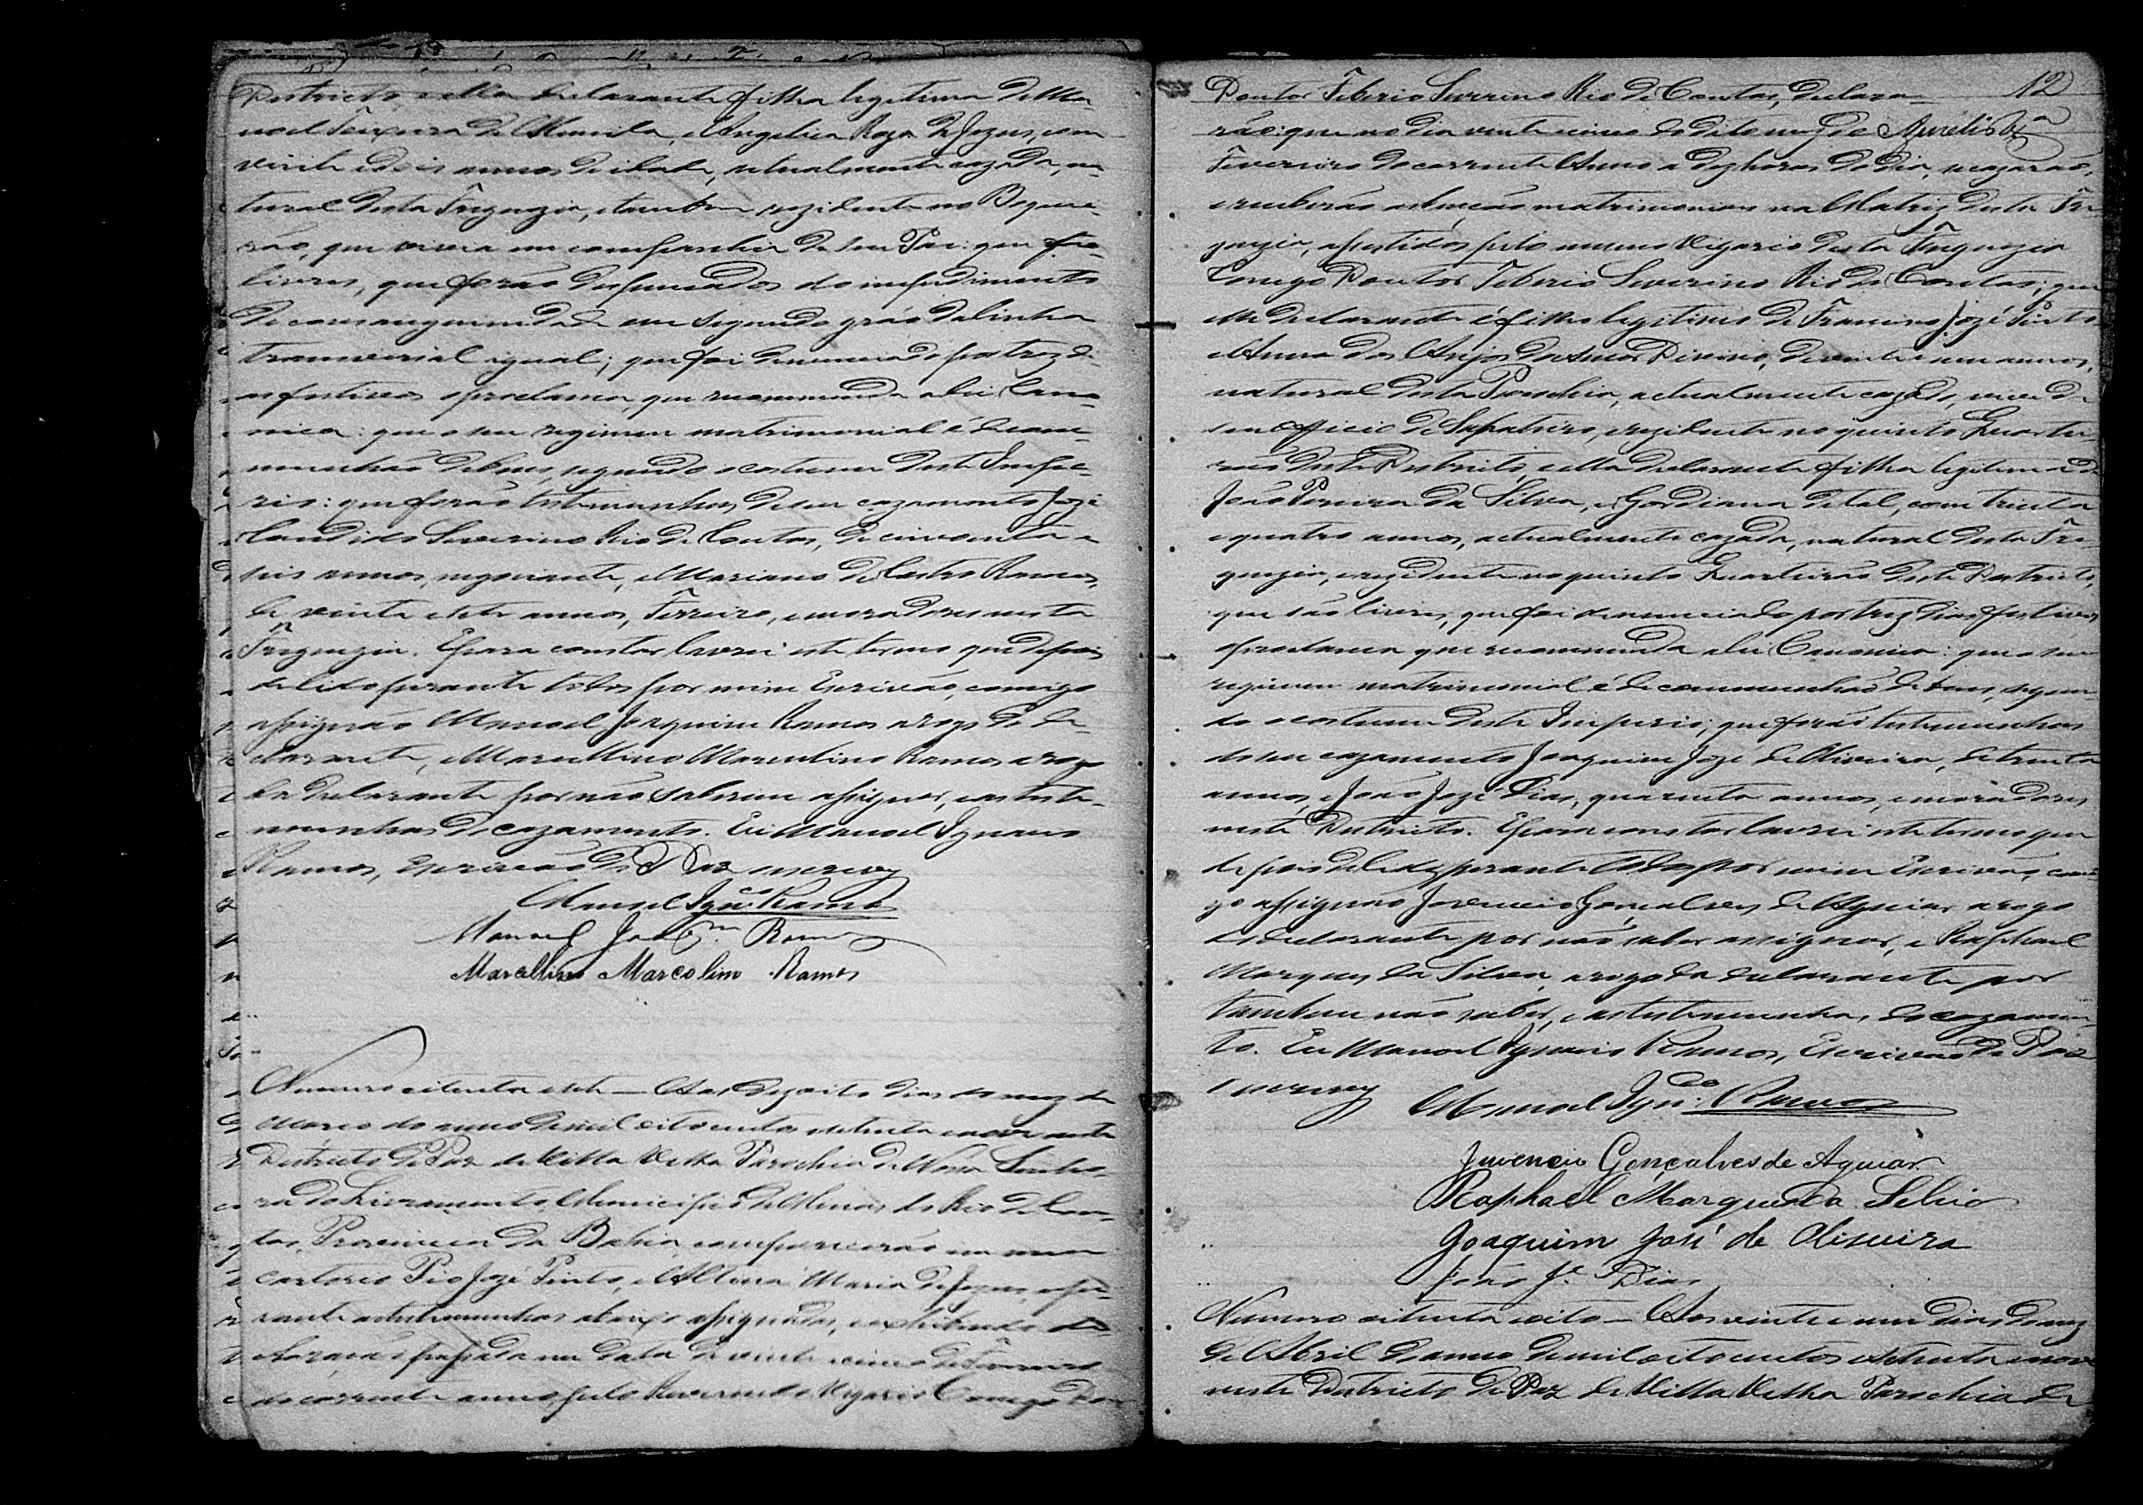 Districto, e ella declarante filha legitima de Ma-
noel Teixeira de Almeida, e Angelica Roza de Jezus, com
vinte e dois annos de idade, actualmente cazada, na-
tural desta Freguezia, e tambem rezidente no
que vivera em companhia de seu Pae: que são
livres, que forão despensados do impedimento
de consanguinidade em segundo gráo da linha
transversal igual; que foi denunciado por trez di-
as festivos e proclama, que recommenda a lei Cano-
nica: que o seu regimen matrimonial é de com-
munhão de bens, segundo o costume deste Impe-
rio: que forão testemunhas de seu cazamento Jozé
Candido Severino Rio de Contas, de cincoenta e
seis annos, negociante, e Mariano de Castro Ramos,
de vinte e sete annos, Ferreiro, e moradores nesta
Freguezia. E para constar lavrei este termo que depois
de lido perante todos por mim Escrivão, comigo
assignão Manoel Joaquim Ramos a rogo do de-
clarante, e Marcellino Marcolino Ramos a rogo
da declarante por não saberem assignar, e as teste-
munhas do cazamento. Eu Manoel Ignacio
Ramos, Escrivão de Paz escrevy
Manoel Ignco Ramos
Manoel Joaqm. Ramos
Marcellino Marcolino Ramos
Numero oitenta e sete — Aos dezoito dias do mez de
Março do anno de mil oitocentos setenta e nove neste
Districto de Paz da Villa Velha Parochia de Nossa Senho-
ra do Livramento, Municipio de Minas do Rio de Con-
tas, Provincia da Bahia, comparecerão em meu
cartorio Pio Jozé Pinto, e Altina Maria de Jezus, e pe-
rante as testemunhas abaixo assignadas, e exhibindo de-
claração passada em data de vinte e cinco de Fevereiro
do corrente anno pelo Reverendo Vigario Conego Dou-
12
Doutor Tiberio Severino Rio de Contas, declara-
rão: que no dia vinte e cinco do dito mez de
Fevereiro do corrente Anno a dez horas do dia, se cazarão,
e receberão as bençãos matrimoniaes na Matriz desta Fre-
guezia, assistidos pelo mesmo Vigario desta Freguezia
Conego Doutor Tiberio Severino Rio de Contas; que
elle declarante é filho legitimo de Francisco Jozé Pinto
e Anna dos Anjos do Amor Divino, de vinte e um annos,
natural desta Parochia, actualmente cazado, vive de
seu officio de Sapateiro, e rezidente no quinto Quartei-
rão deste Districto, e ella declarante filha legitima de
João Pereira da Silva, e Gordiana de tal, com trinta
e quatro annos, actualmente cazada, natural desta Fre-
guezia, e rezidente no quinto Quarteirão deste Districto,
que são livres, que foi denunciado por trez dias festivos
e proclama que recommenda a lei Canonica: que o seu
regimen matrimonial é de communhão de bens, segun-
do o costume deste Imperio; que forão testemunhas
do seu cazamento Joaquim Jozé de Oliveira, de trinta
annos, e João Jozé Dias, quarenta annos, e moradores
neste Districto. E para constar lavrei este termo que
depois de lido perante todos por mim Escrivão, com-
go assignão Juvencio Gonçalves de Aguiar a rogo
do declarante por não saber assignar, e Raphael
Marques da Silva, a rogo da declarante por
tambem não saber, e as testemunhas do cazamen-
to. Eu Manoel Ignacio Ramos, Escrivão de Paz
escrevy
Manoel Ignco Ramos
Juvencio Gonçalves de Aguiar
Raphael Marques da Silva
Joaquim José de Oliveira
João Je. Dias
Numero oitenta e oito — Aos vinte e um dias do mez
de Abril do anno de mil oitocentos e setenta e nove
neste Districto de Paz da Villa Velha Parochia de